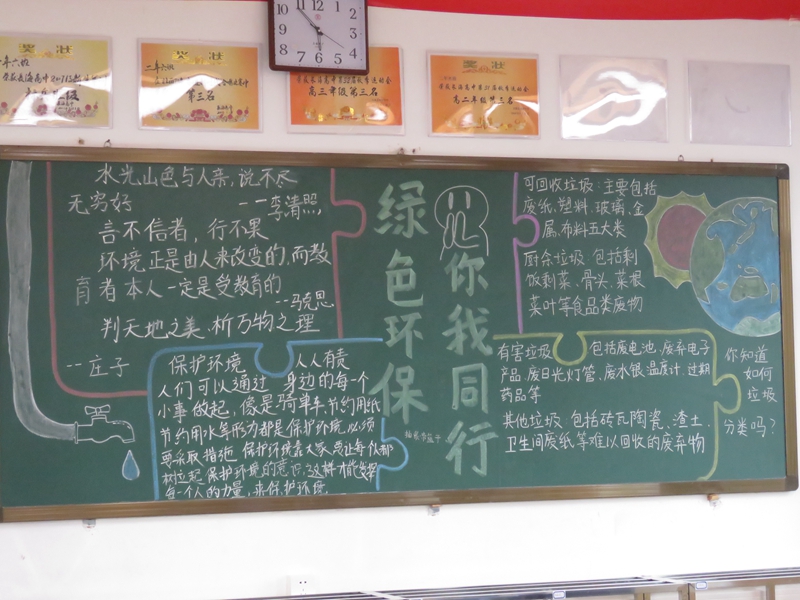 奖状
二年六班
第三名
奖状
高三年级第三名
奖状
高二年级第三名
水光山色与人亲,说不尽
无穷好 ——李清照
言不信者,行不果
环境正是由人来改变的,而教
育者本人一定是受教育的
--马克思
判天地之美、析万物之理
--庄子
保护环境 人人有责
人们可以通过 身边的每一个
小事做起,像是骑单车,节约用纸
节约用水等形力都是保护环境,必须
要采取措施 保护环境靠大家,要让每个人都
树立起保护环境的意识,这样才能发挥
每一个人的力量,来保护环境
绿色环保
你我同行
可回收垃圾:主要包括
废纸、塑料、玻璃、金
属、布料五大类
厨余垃圾 包括剩
饭剩菜、骨头、菜根
菜叶等食品类废物
有害垃圾 包括废电池、废弃电子
产品、废日光灯管、废水银温度计、过期
药品等
其他垃圾 包括砖瓦陶瓷、渣土、
卫生间废纸等难以回收的废弃物
你知道
如何
垃圾
分类吗?